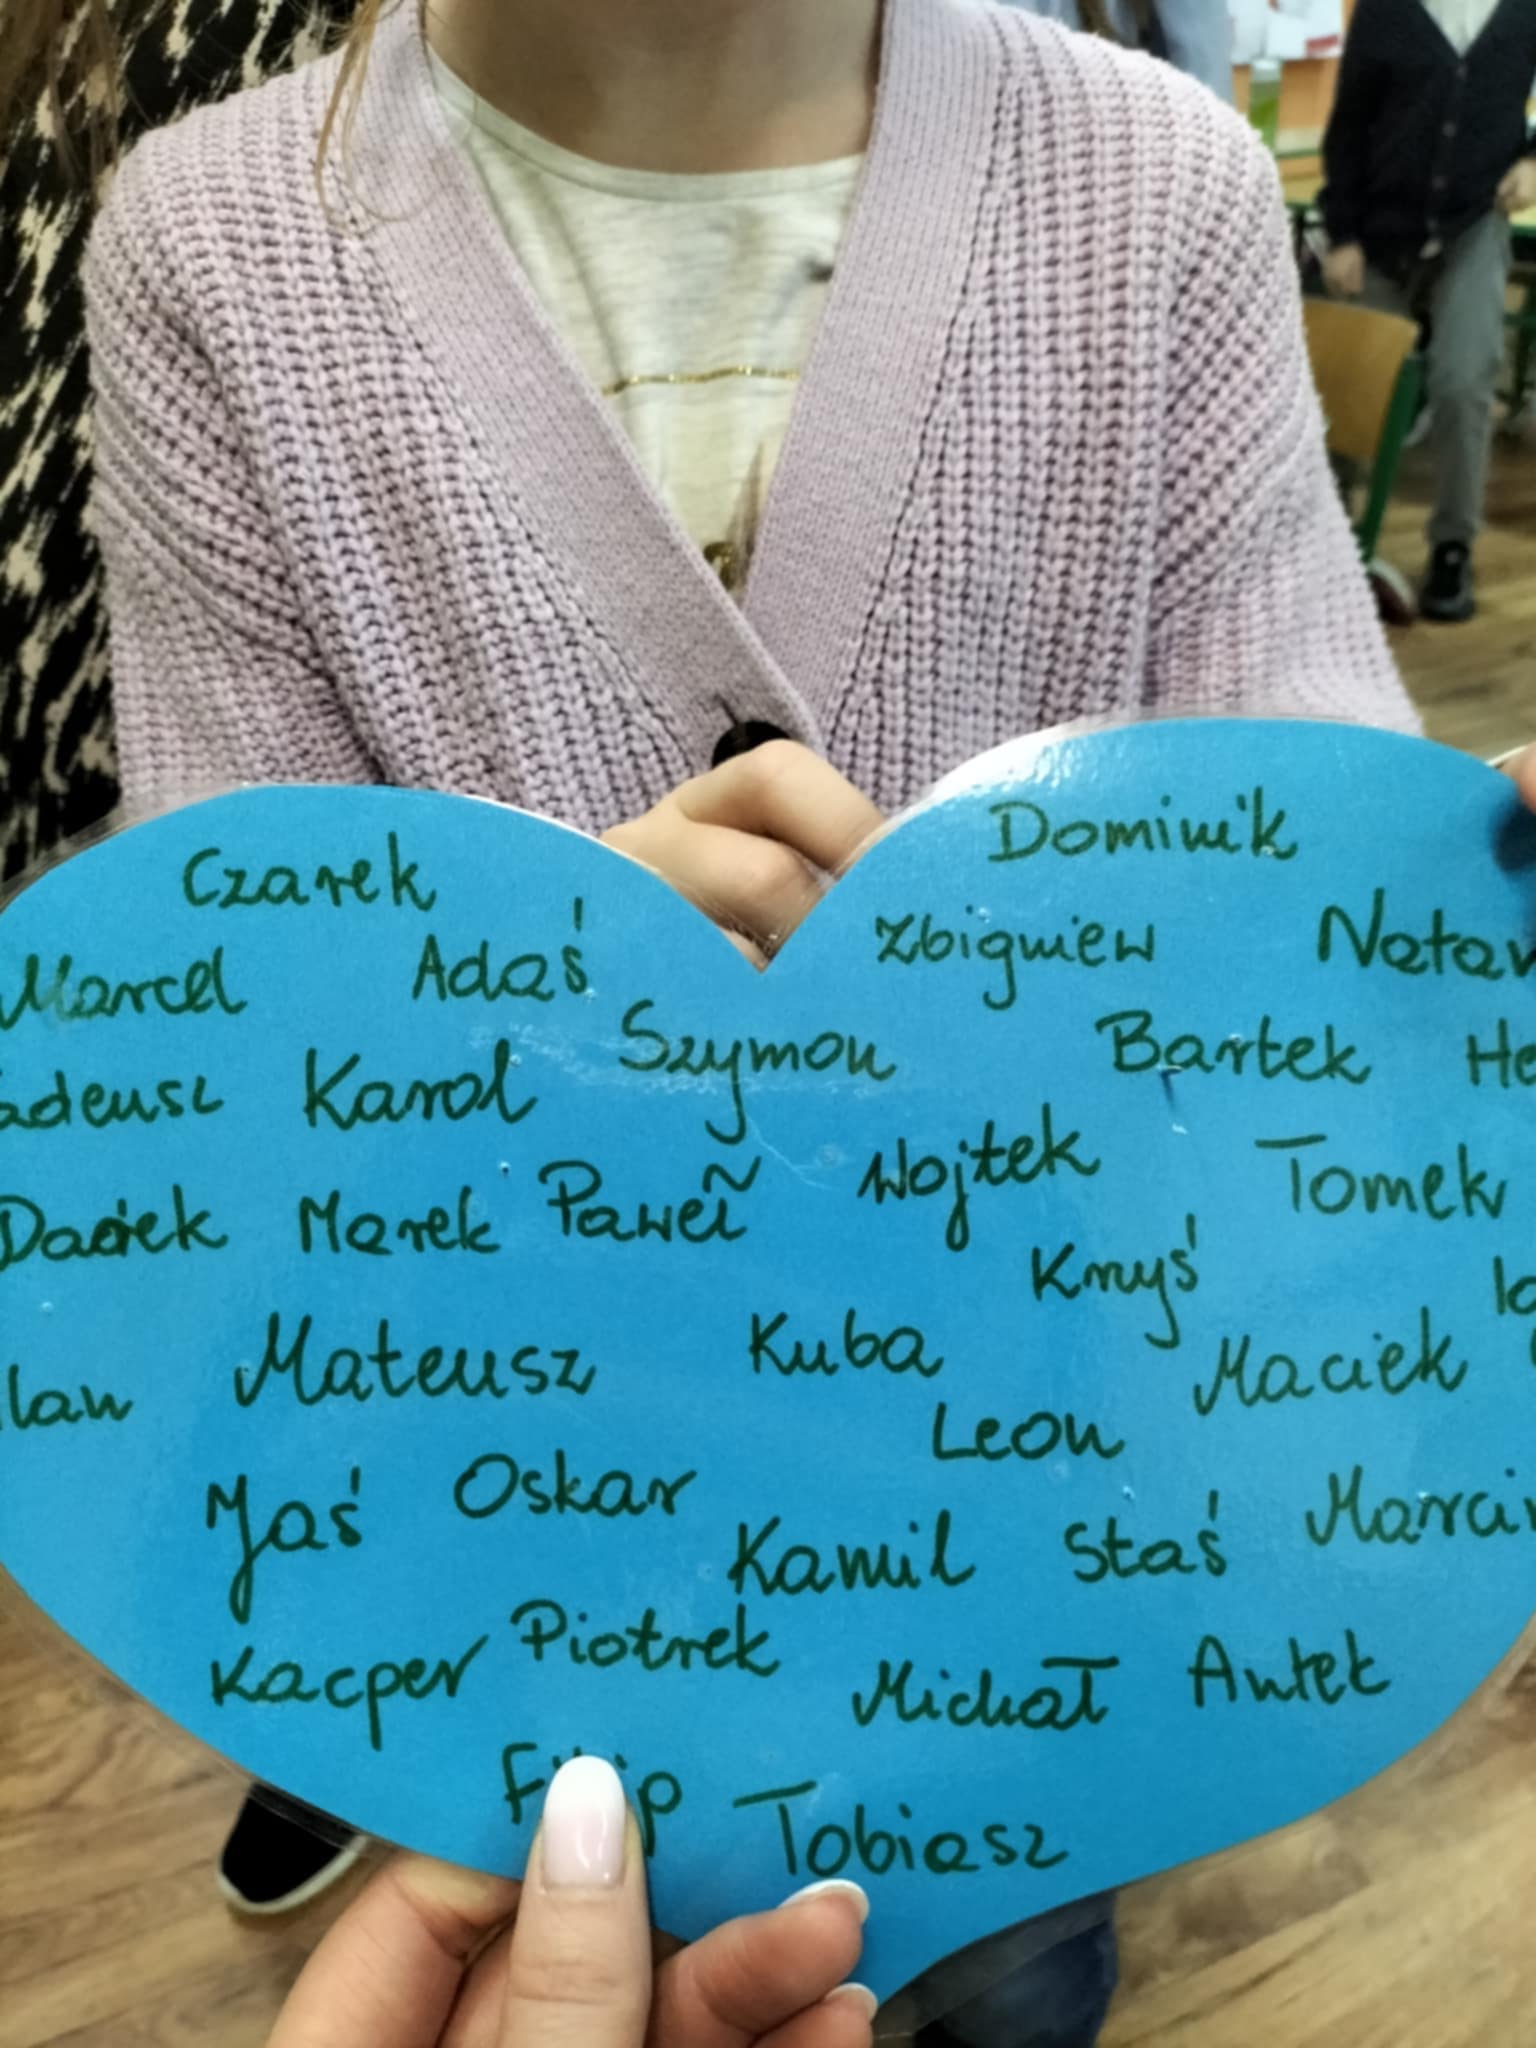 Czarek
Dominik
Marcel Adaś Zbigniew Natan
Szymon Bartek He
adeusz Karol
Wojtek Tomek
Darek Marek Paweł
Kryś
Mateusz Kuba Maciek
lan
Leon
Jaś Oskar Marcin
Kamil Staś
Kacper Piotrek
Michał Antek
Filip Tobiasz